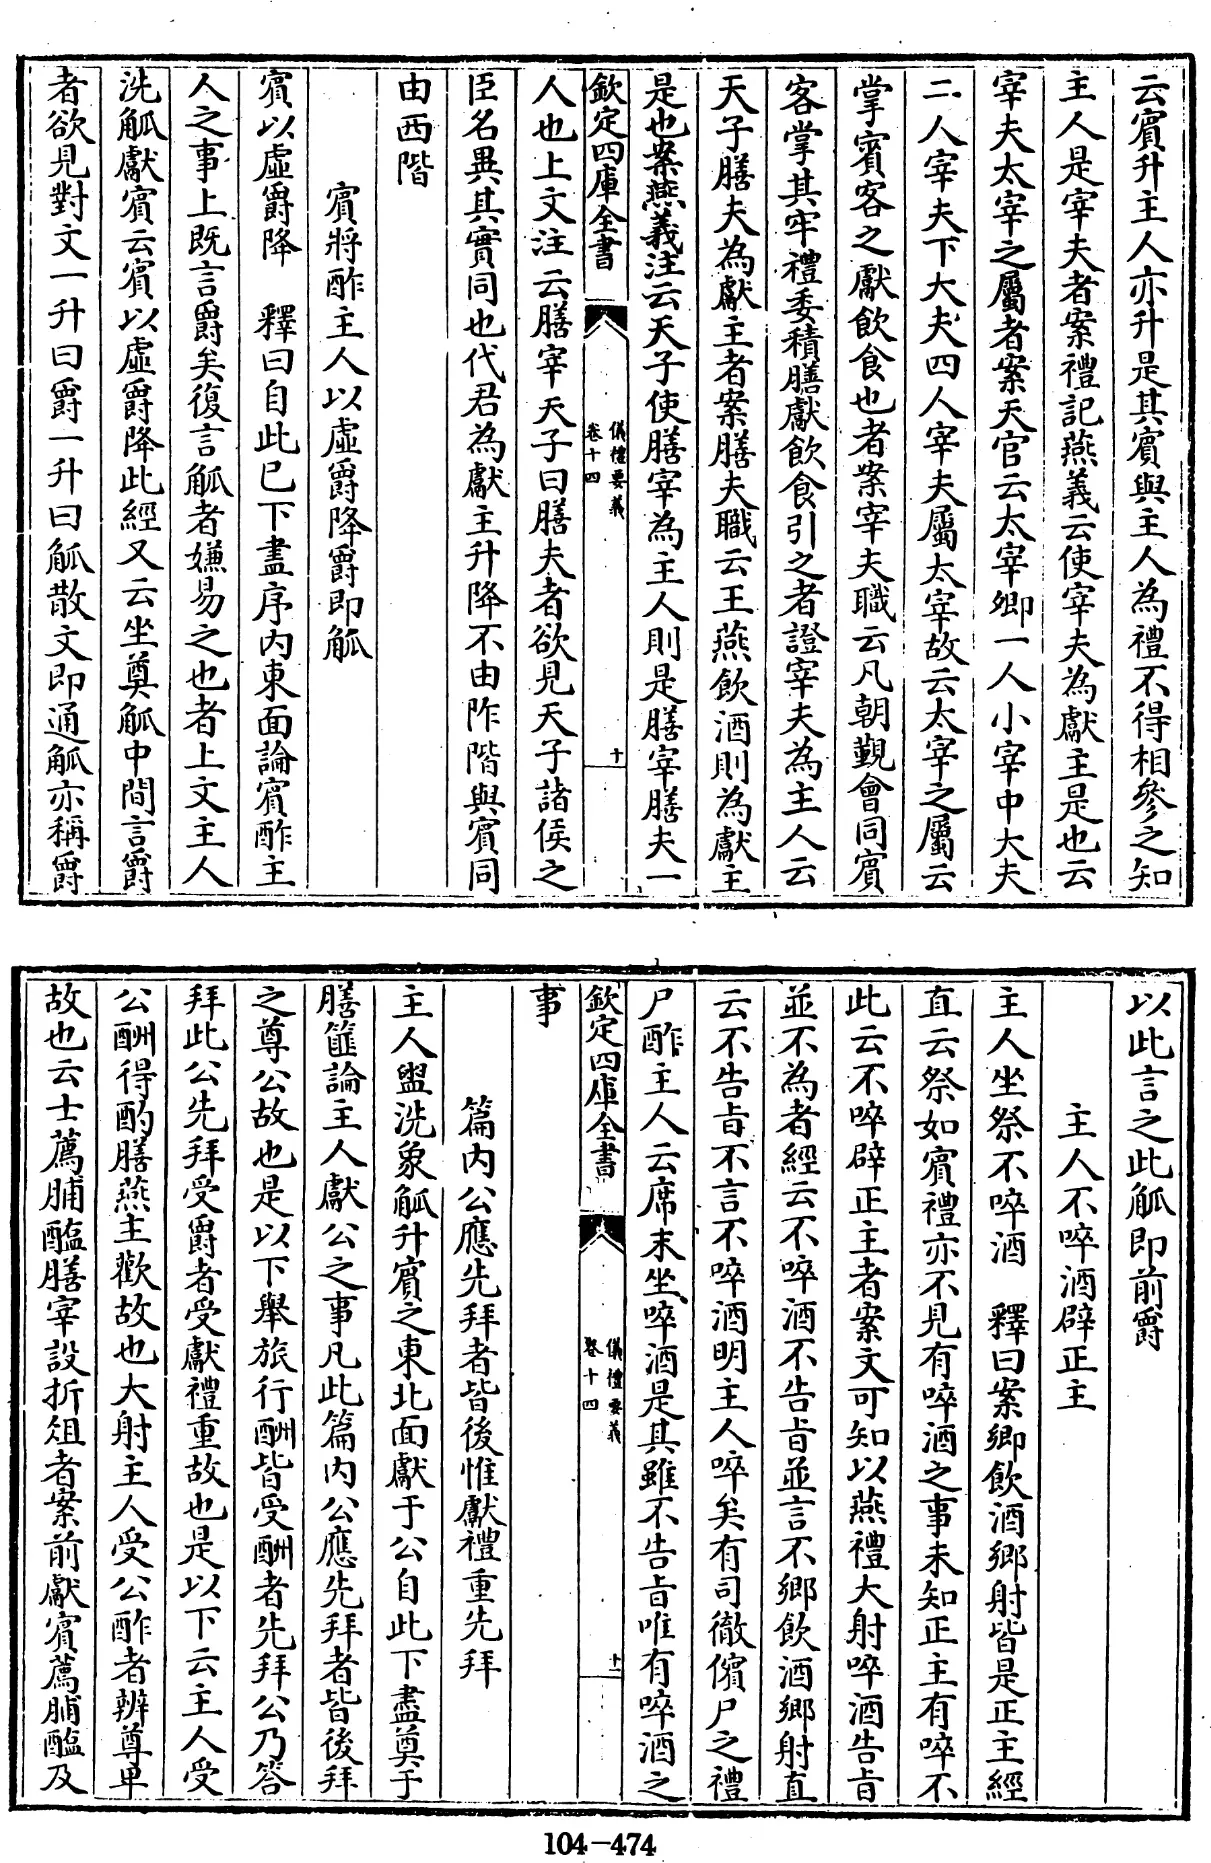 云賓升主人亦升是其賓與主人為禮不得相參之知
主人是宰夫者案禮記燕義云使宰夫為獻主是也云
宰夫太宰之屬者案天官云太宰卿一人小宰中大夫
二人宰夫下大夫四人宰夫屬太宰故云太宰之屬云
掌賓客之獻飲食也者案宰夫職云凡朝覲會同賓
客掌其牢禮委積膳獻飲食引之者證宰夫為主人云
天子膳夫為獻主者案膳夫職云王燕飲酒則為獻主
是也案燕義注云天子使膳宰為主人則是膳宰膳夫一
欽定四庫全書
儀禮要義
卷十四
十
人也上文注云膳宰天子曰膳夫者欲見天子諸侯之
臣名異其實同也代君為獻主升降不由阼階與賓同
由西階
賓將酢主人以虛爵降爵即觚
賓以虛爵降 釋曰自此已下盡序內東面論賓酢主
人之事上既言爵矣復言觚者嫌易之也者上文主人
洗觚獻賓云賓以虛爵降此經又云坐奠觚中間言爵
者欲見對文一升曰爵一升曰觚散文即通觚亦稱爵
以此言之此觚即前爵
主人不啐酒辟正主
主人坐祭不啐酒 釋曰案鄉飲酒鄉射皆是正主經
直云祭如賓禮亦不見有啐酒之事未知正主有啐不
此云不啐辟正主者案文可知以燕禮大射啐酒告旨
並不為者經云不啐酒不告旨並言不鄉飲酒鄉射直
云不告旨不言不啐酒明主人啐矣有司徹儐尸之禮
尸酢主人云席末坐啐酒是其雖不告旨唯有啐酒之
欽定四庫全書
儀禮要義
卷十四
十一
事
篇內公應先拜者皆後惟獻禮重先拜
主人盥洗象觚升賓之東北面獻于公自此下盡奠于
膳篚論主人獻公之事凡此篇內公應先拜者皆後拜
之尊公故也是以下舉旅行酬皆受酬者先拜公乃答
拜此公先拜受爵者受獻禮重故也是以下云主人受
公酬得酌膳燕主歡故也大射主人受公酢者辨尊卑
故也云士薦脯醢膳宰設折俎者案前獻賓薦脯醢及
104-474